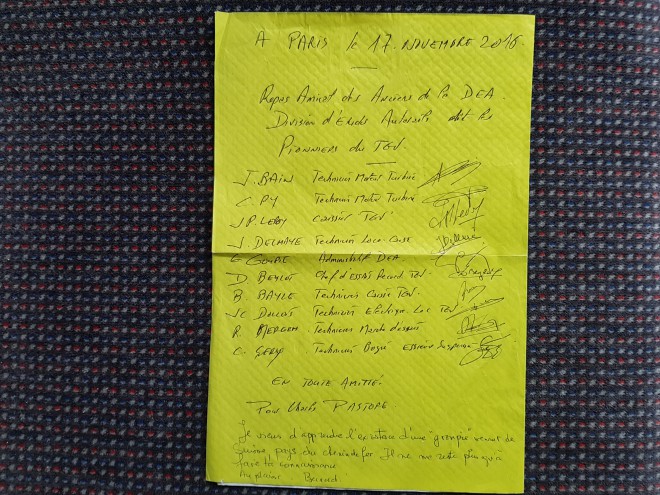 A PARIS le 17. NOVEMBRE 2016.
Repas Amical des Anciens de la DEA.
Division d'Etudes Autorails dit les
PIONNIERS du TGV.
J. BAIN Technicien Moteur Turbine
C. PY Technicien Moteur Turbine
J.P. LEROY Caissier TGV
J. DELHAYE Technicien Loco Caisse
Administratif DEA
D. BEYLOT Chef d'essais Record TGV.
B. BAYLE Technicien Caisse TGV
JC Technicien Electrique Loc TGV
R. MERGEM Technicien
C. Technicien Bogie Essieux Suspension
EN TOUTE AMITIÉ.
Pour Charles PASTORE
Je viens d'apprendre l'existence d'une "groupie" venant de
Suisse, pays du chemin de fer. Il ne me reste plus qu'à
faire ta connaissance
Au plaisir Bernard.